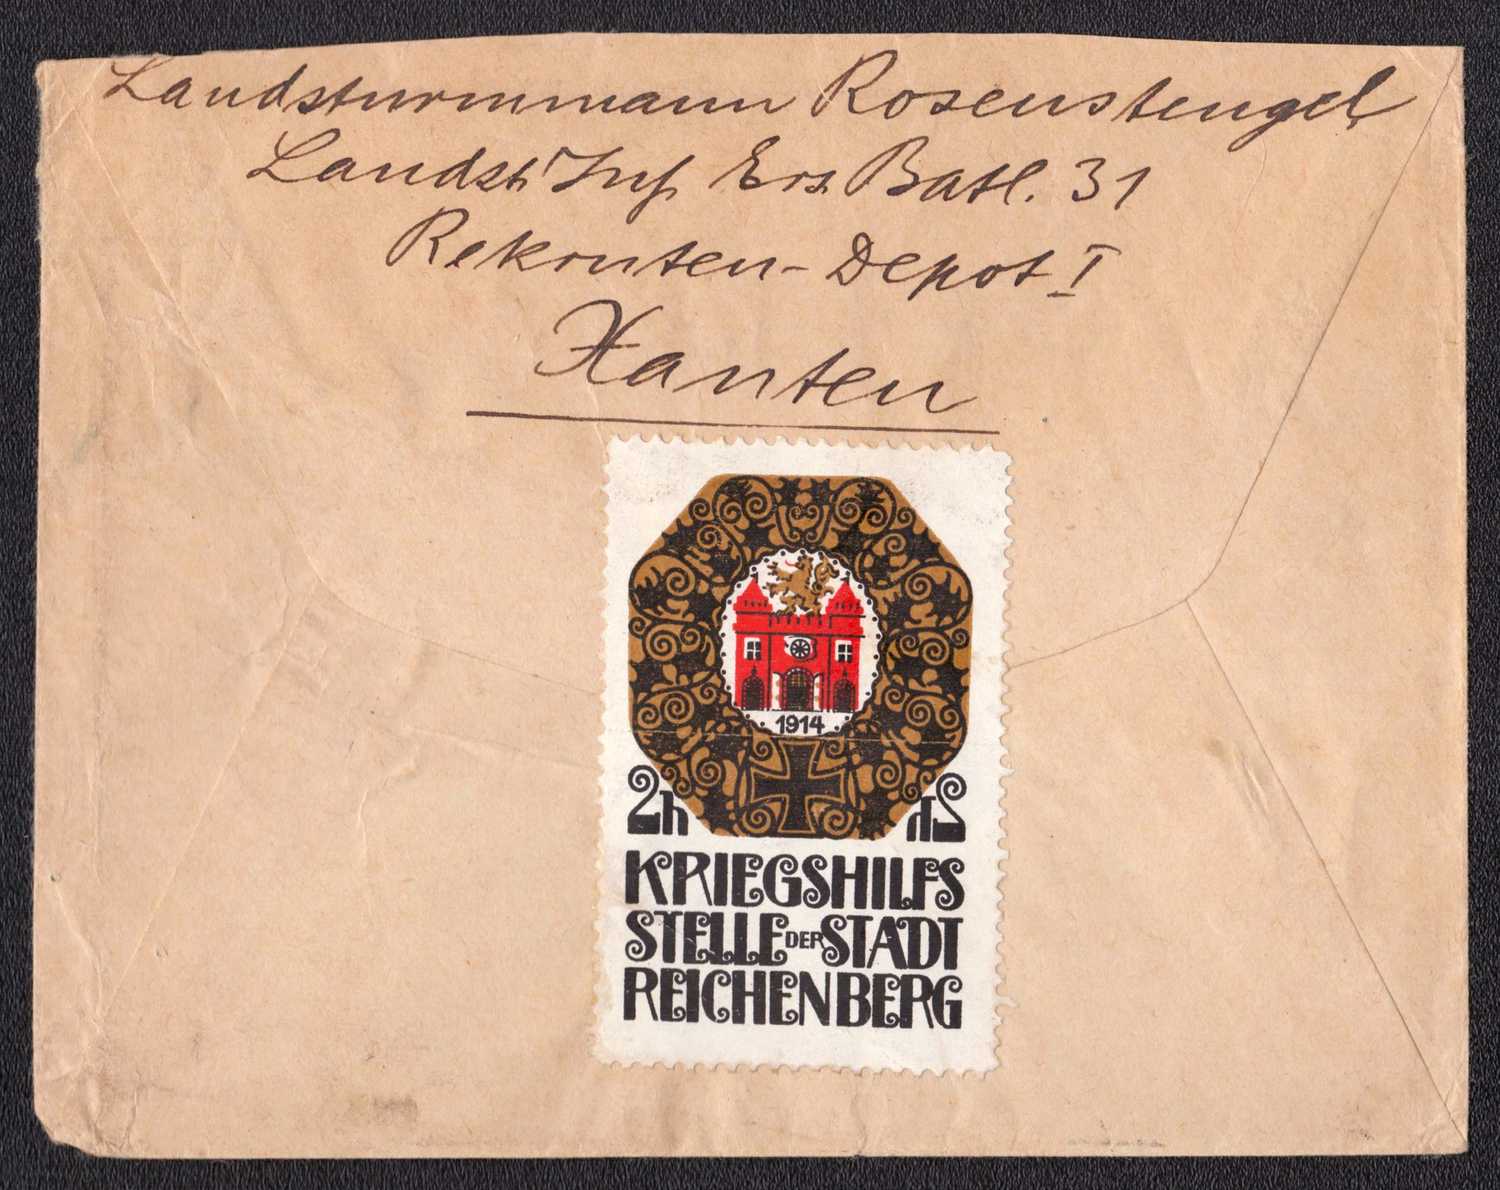 Landsturmmann Rosenstengel
Landst. Inf. Ers. Batl. 31
Rekruten-Depot I
Xanten
1914
2h 2h
KRIEGSHILFS
STELLE DER STADT
REICHENBERG